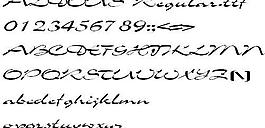 Regular.ttf
0123456789:;<=>
ABCDEFGHIJKLMN
OPQRSTUVWXYZ[\]
abcdefghijklmn
opqrstuvwxyz